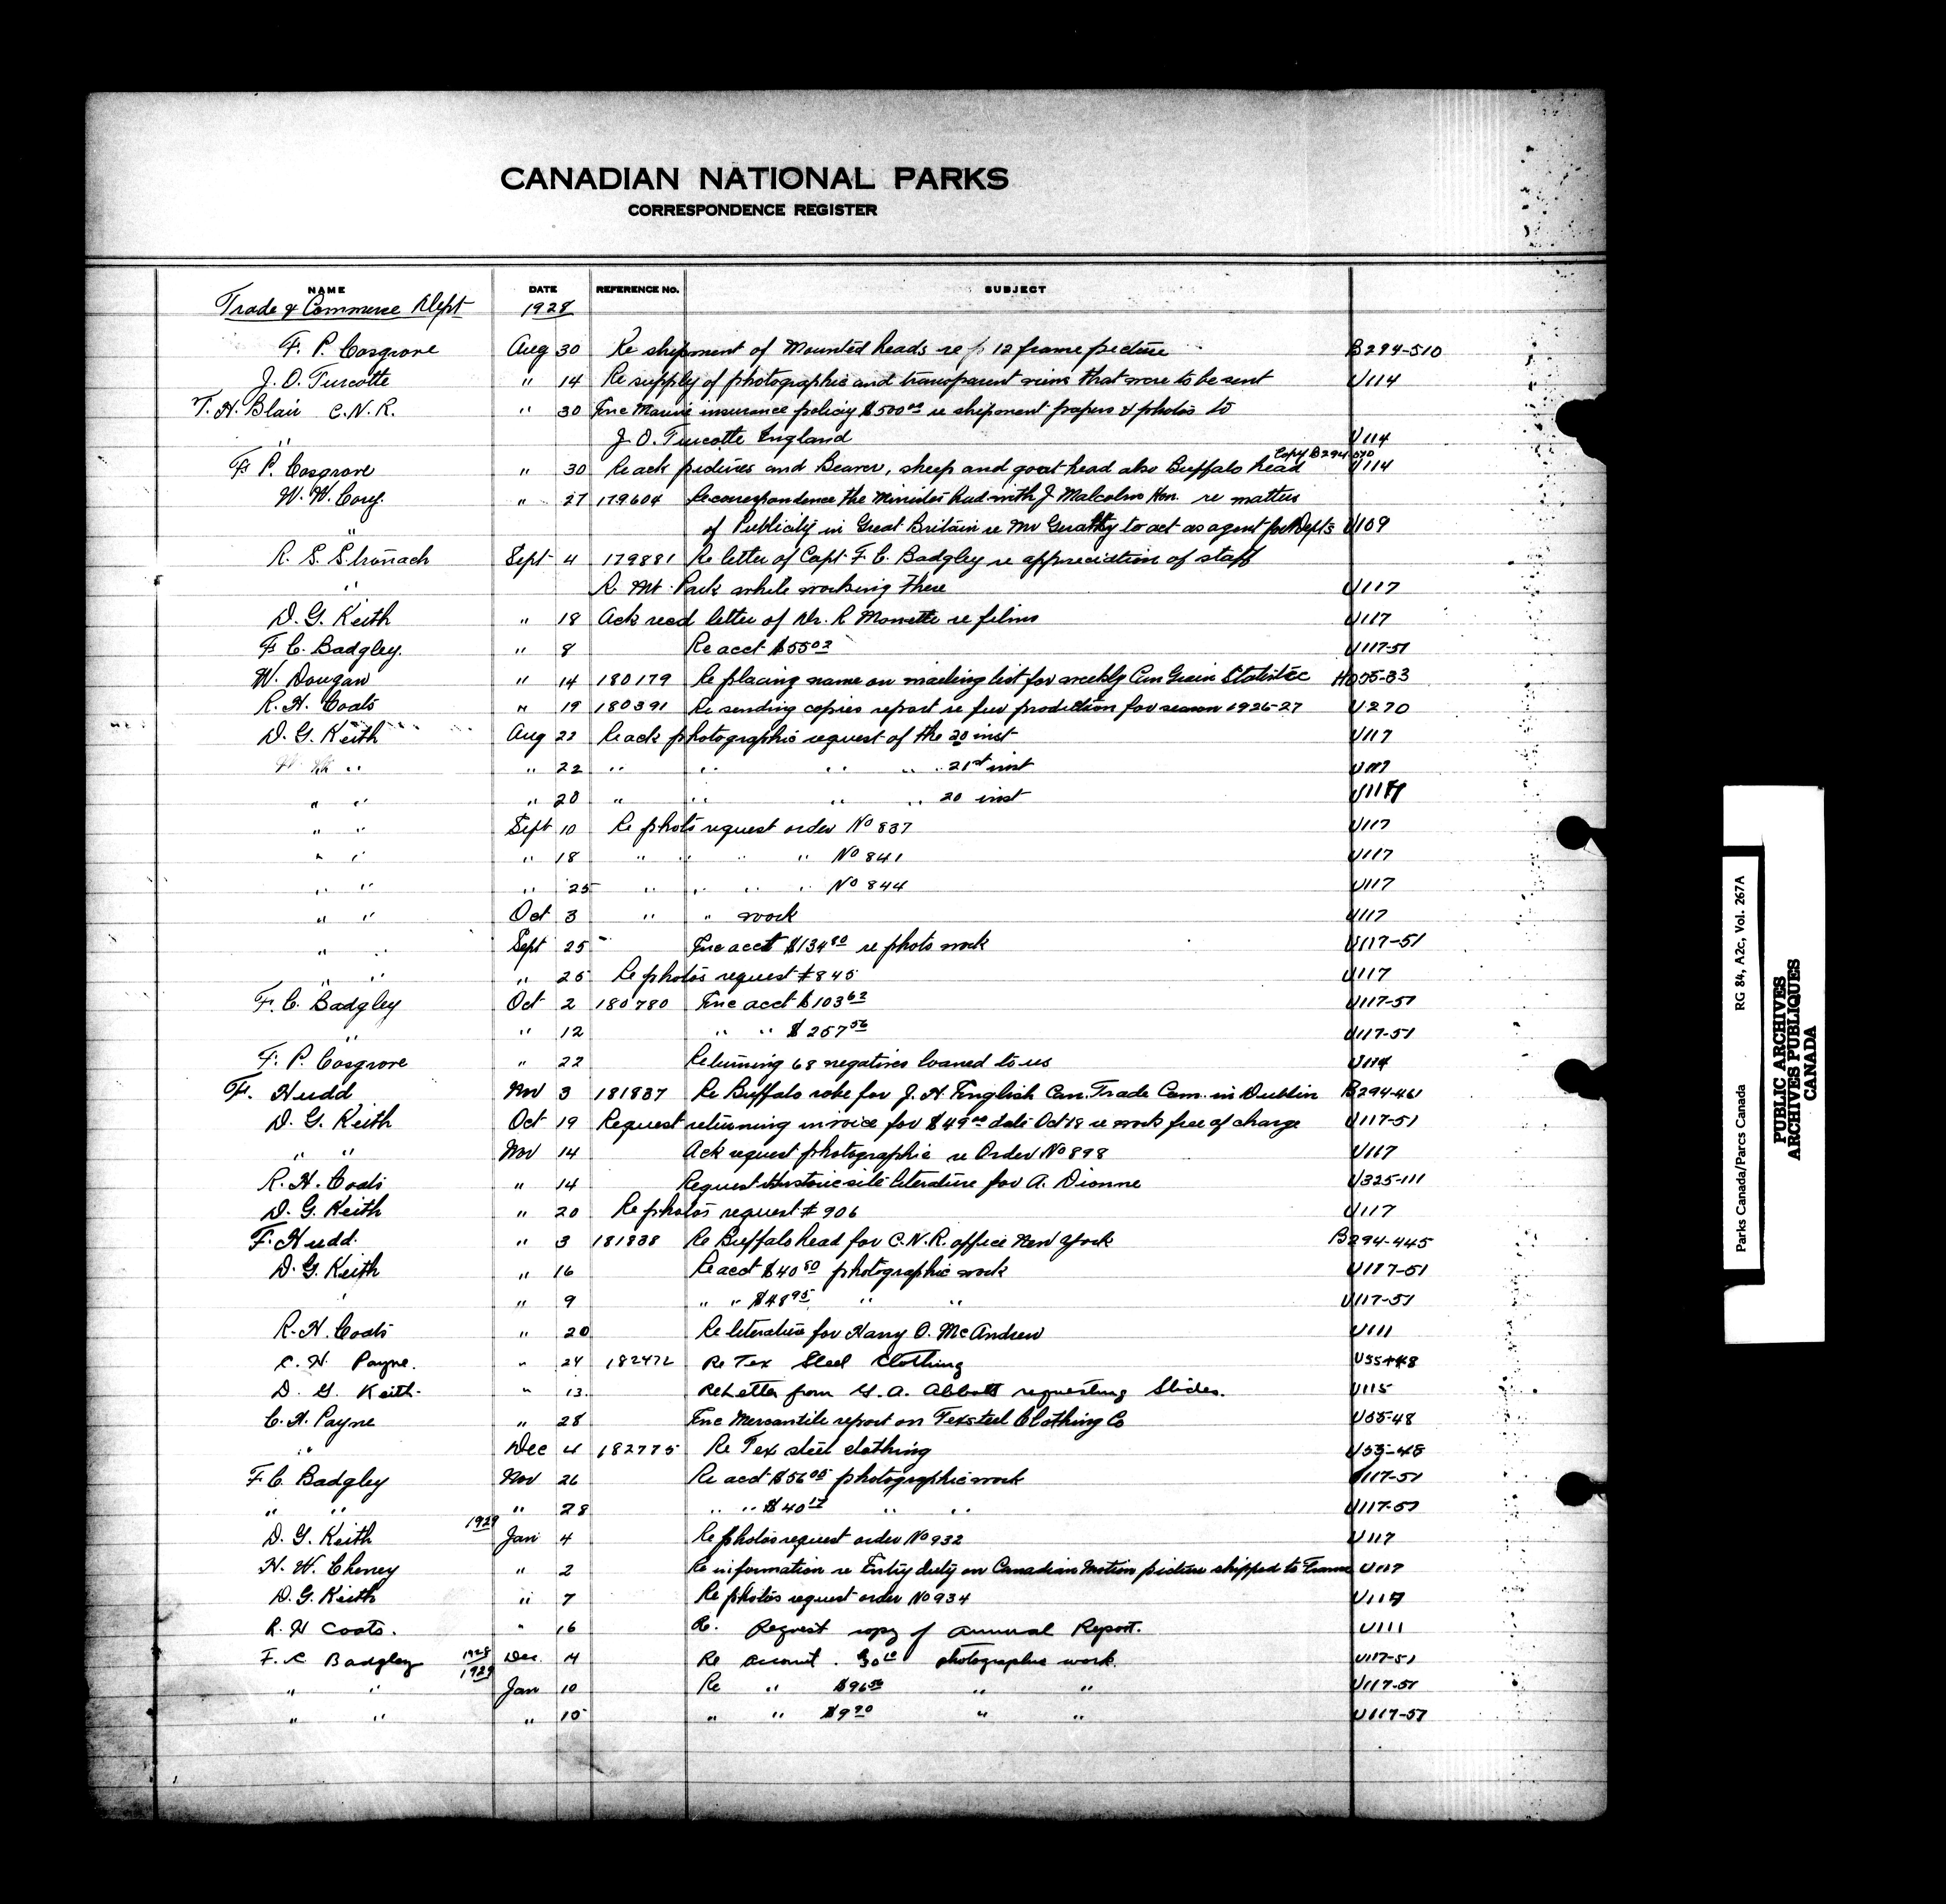 CANADIAN NATIONAL PARKS
CORRESPONDENCE REGISTER
NAME DATE REFERENCE No. SUBJECT
Trade & Commerce Dept 1928
F. P. Cosgrove Aug 30 Re shipment of Mounted heads re 12 frame picture B294-510
J. O. Turcotte " 14 Re supply of photographic and transparent views that were to be sent U114
T. H. Blair C.N.R. " 30 Inc Marine insurance policy $500 00 re shipment papers & photos to
" J. O. Turcotte England U114
Copy B294-510
F. P. Cosgrove " 30 Re ack pictures and Beaver, sheep and goat head also Buffalo head U114
W. W. Cory. " 27 179604 Re correspondence the Minister had with J Malcolm Hon. re matter
" of Publicity in Great Britain re Mr to act as agent for Depts U109
R. S. Stronach Sept 4 179881 Re letter of Capt. F. C. Badgley re appreciation of staff
" R. Mt. Park while working there U117
D. G. Keith " 18 Ack recd letter of Dr. R Monette re films U117
F. C. Badgley. " 8 Re acct $55 03 U117-51
W. Dougan " 14 180179 Re placing name on mailing list for weekly Can Grain Statistic
R. H. Coats " 19 180391 Re sending copies report re fur production for season 1926-27 U270
D. G. Keith Aug 22 Re ack photographic request of the 20 inst U117
" " 22 " " " " 21st inst U117
" " " 20 " " " " 20 inst
" " Sept 10 Re photo request order No 837 U117
" " " 18 " " " " No 841 U117
" " " 25 " " " " No 844 U117
" " Oct 3 " " work U117
" " Sept 25 Inc acct $134 80 re photo work U117-51
" " " 25 Re photos request #845 U117
F. C. Badgley Oct 2 180780 Inc acct $103 62 U117-51
" " 12 " " $257 56 U117-51
F. P. Cosgrove " 22 Returning 68 negatives loaned to us U114
F. Hudd Nov 3 181837 Re Buffalo robe for J. H English Can. Trade Com. in Dublin B294-461
D. G. Keith Oct 19 Request returning invoice for $49 00 date Oct 18 re work free of charge U117-51
" " Nov 14 Ack request photographic re Order No 898 U117
R. H. Coats " 14 Request Historic site literature for A. Dionne U325-111
D. G. Keith " 20 Re photos request # 906 U117
F. Hudd. " 3 181838 Re Buffalo head for C.N.R. office New York B294-445
D. G. Keith " 16 Re acct $40 50 photographic work U117-51
" " 9 " " $48 95 " " U117-51
R. H. Coats " 20 Re literature for Harry O. McAndrew U111
C. H. Payne. " 24 182472 Re Tex Steel Clothing U55-48
D. G. Keith. " 13. Re Letter from A. Abbott requesting Slides. U115
C. H. Payne " 28 Inc Mercantile report on Texsteel Clothing Co U55-48
" Dec 4 182775 Re Tex steel clothing U55-48
F. C. Badgley Nov 26 Re acct $56 05 photographic work U117-51
" " " 28 " " $40 17 " " U117-51
1929
D. G. Keith Jan 4 Re photos request order No 932 U117
H. W. Cheney " 2 Re information re Entry duty on Canadian Motion picture shipped to France U117
D. G. Keith " 7 Re photos request order No 934 U117
R. H Coats. " 16 Re. Request copy of annual Report. U111
F. C Badgley 1928 Dec. 4 Re account. photographic work. U117-51
" " 1929 Jan 10 Re " $96 50 " " U117-51
" " " 15 " " $9 90 " " U117-51
Parks Canada/Parcs Canada RG 84, A2c, Vol. 267A
PUBLIC ARCHIVES
ARCHIVES PUBLIQUES
CANADA